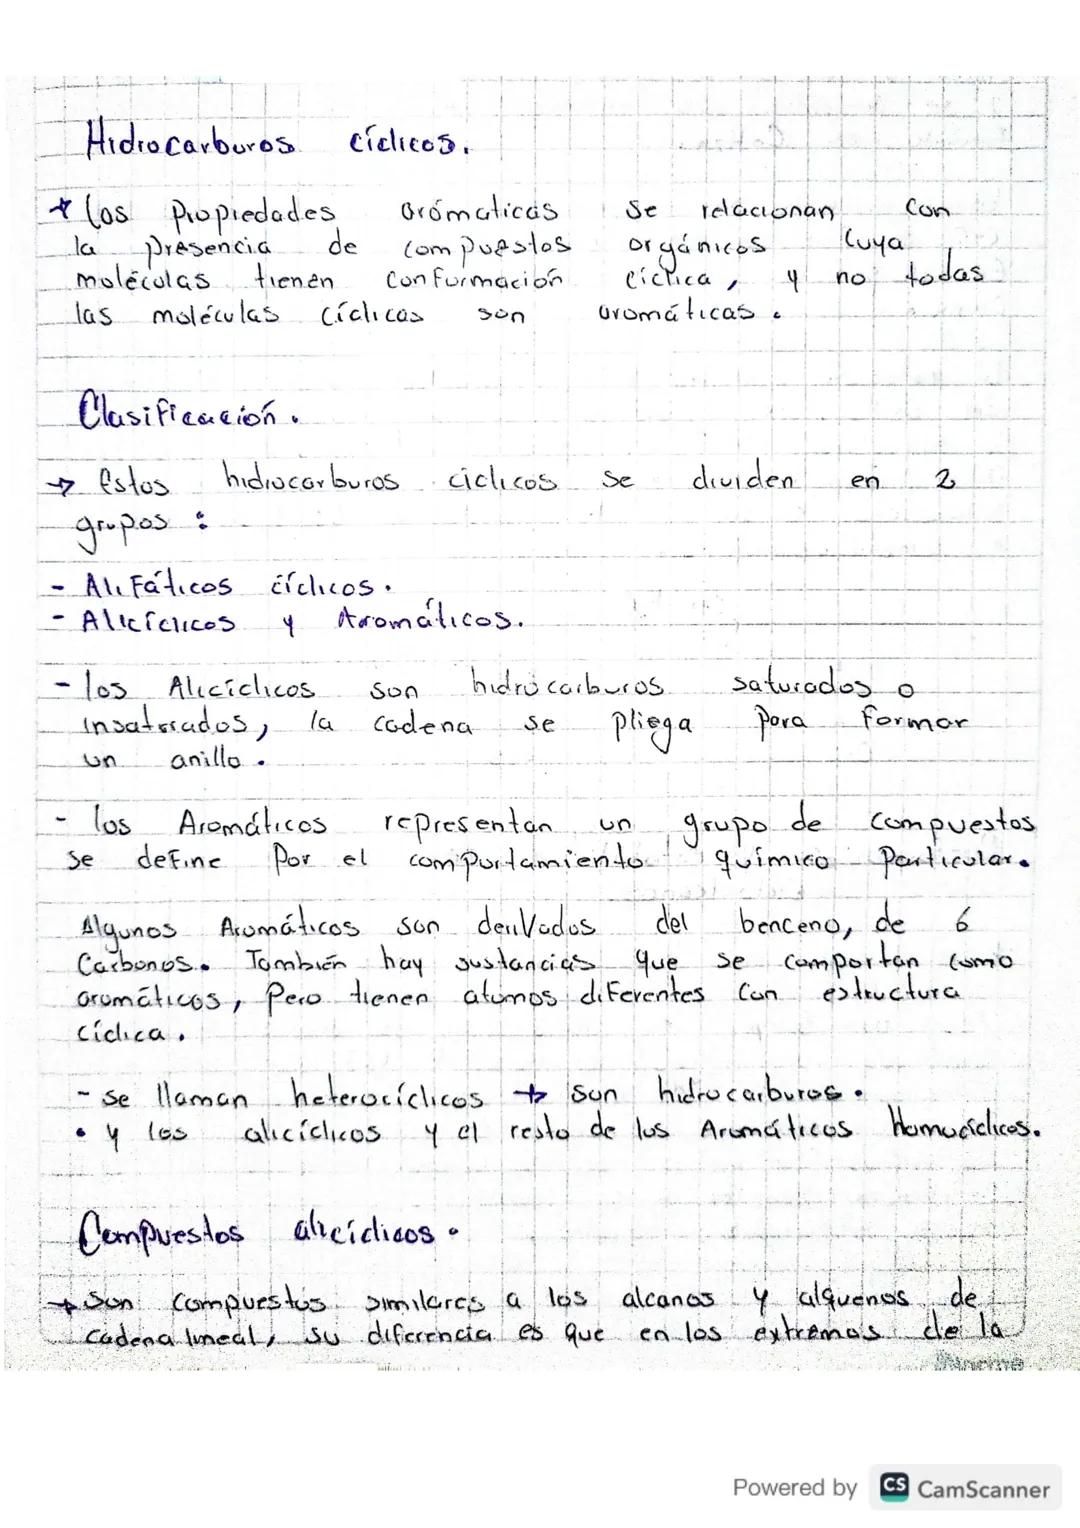 Hidrocarburos cíclicos.
→ Las propiedades arómaticas se relacionan con
la presencia de compuestos orgánicos cuya
moléculas tienen conformación cíclica, y no todas
las moléculas cíclicas son aromáticas.
Clasificación.
→ Estos hidrocarburos cíclicos se dividen en 2
grupos :
- Alifáticos cíclicos.
- Alicíclicos y Aromáticos.
- los Alicíclicos son hidrocarburos saturados o
insaturados, la cadena se pliega para formar
un anillo.
- los Aromáticos representan un grupo de compuestos
se define por el comportamiento químico particular.
Algunos Aromáticos son derivados del benceno, de 6
Carbonos. También hay sustancias que se comportan como
aromáticos, pero tienen atomos diferentes con estructura
cíclica.
- se llaman heterocíclicos → son hidrocarburos.
• y los alicíclicos y el resto de los Aromáticos Homocíclicos.
Compuestos alicíclicos.
→ Son compuestos similares a los alcanos y alquenos de
cadena lineal, su diferencia es que en los extremos de la
Norma
Powered by CS CamScanner